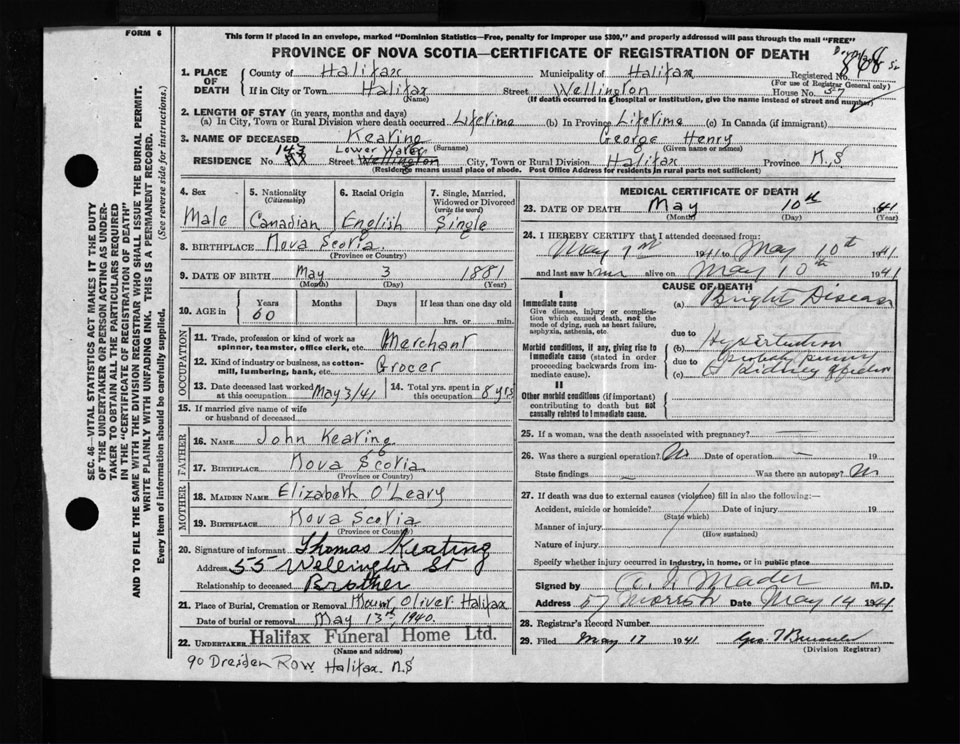 FORM 6
This form if placed in an envelope, marked "Dominion Statistics—Free, penalty for improper use $300," and properly addressed will pass through the mail "FREE"
PROVINCE OF NOVA SCOTIA—CERTIFICATE OF REGISTRATION OF DEATH
868
1. PLACE OF DEATH
County of Halifax Municipality of Halifax Registered No.
(For use of Registrar General only)
If in City or Town Halifax Street Wellington House No. 57
(Name) (If death occurred in hospital or institution, give the name instead of street and number)
2. LENGTH OF STAY (in years, months and days)
(a) In City, Town or Rural Division where death occurred Lifetime (b) In Province Lifetime (c) In Canada (if immigrant)
3. NAME OF DECEASED Keating George Henry
(Surname) (Given name or names)
RESIDENCE No. 143 Street Lower Water Wellington City, Town or Rural Division Halifax Province N.S
(Residence means usual place of abode. Post Office Address for residents in rural parts not sufficient)
4. Sex Male
5. Nationality (Citizenship) Canadian
6. Racial Origin English
7. Single, Married, Widowed or Divorced (write the word) Single
8. BIRTHPLACE Nova Scotia
(Province or Country)
9. DATE OF BIRTH May 3 1881
(Month) (Day) (Year)
10. AGE in Years Months Days If less than one day old
60 hrs. or min.
OCCUPATION
11. Trade, profession or kind of work as spinner, teamster, office clerk, etc. Merchant
12. Kind of industry or business, as cotton-mill, lumbering, bank, etc. Grocer
13. Date deceased last worked at this occupation May 3/41
14. Total yrs. spent in this occupation 8 yrs
15. If married give name of wife or husband of deceased
FATHER
16. NAME John Keating
17. BIRTHPLACE Nova Scotia
(Province or Country)
MOTHER
18. MAIDEN NAME Elizabeth O'Leary
19. BIRTHPLACE Nova Scotia
(Province or Country)
20. Signature of informant Thomas Keating
Address 55 Wellington St
Relationship to deceased Brother
21. Place of Burial, Cremation or Removal Mount Oliver Halifax
Date of burial or removal May 13th, 1940.
22. UNDERTAKER Halifax Funeral Home Ltd.
(Name and address)
90 Dresden Row Halifax. N.S
MEDICAL CERTIFICATE OF DEATH
23. DATE OF DEATH May 10th 41
(Month) (Day) (Year)
24. I HEREBY CERTIFY that I attended deceased from:
May 1941 to May 10th 1941
and last saw him alive on May 10th 1941
CAUSE OF DEATH
I
Immediate cause
Give disease, injury or complication which caused death, not the mode of dying, such as heart failure, asphyxia, asthenia, etc.
(a) Bright Disease
due to
Morbid conditions, if any, giving rise to immediate cause (stated in order proceeding backwards from immediate cause).
(b) Hypertension
due to
(c) Kidney
II
Other morbid conditions (if important) contributing to death but not causally related to immediate cause.
25. If a woman, was the death associated with pregnancy? —
26. Was there a surgical operation? No Date of operation — 19
State findings Was there an autopsy? No
27. If death was due to external causes (violence) fill in also the following:—
Accident, suicide or homicide? Date of injury 19
(State which)
Manner of injury
(How sustained)
Nature of injury
Specify whether injury occurred in industry, in home, or in public place
Signed by Mader M.D.
Address 57 Morris St Date May 14 1941
28. Registrar's Record Number
29. Filed May 17 1941
(Division Registrar)
SEC. 46—VITAL STATISTICS ACT MAKES IT THE DUTY
OF THE UNDERTAKER OR PERSON ACTING AS UNDER-
TAKER TO OBTAIN ALL THE PARTICULARS REQUIRED
IN THE "CERTIFICATE OF REGISTRATION OF DEATH"
AND TO FILE THE SAME WITH THE DIVISION REGISTRAR WHO SHALL ISSUE THE BURIAL PERMIT.
WRITE PLAINLY WITH UNFADING INK. THIS IS A PERMANENT RECORD.
Every item of information should be carefully supplied. (See reverse side for instructions.)